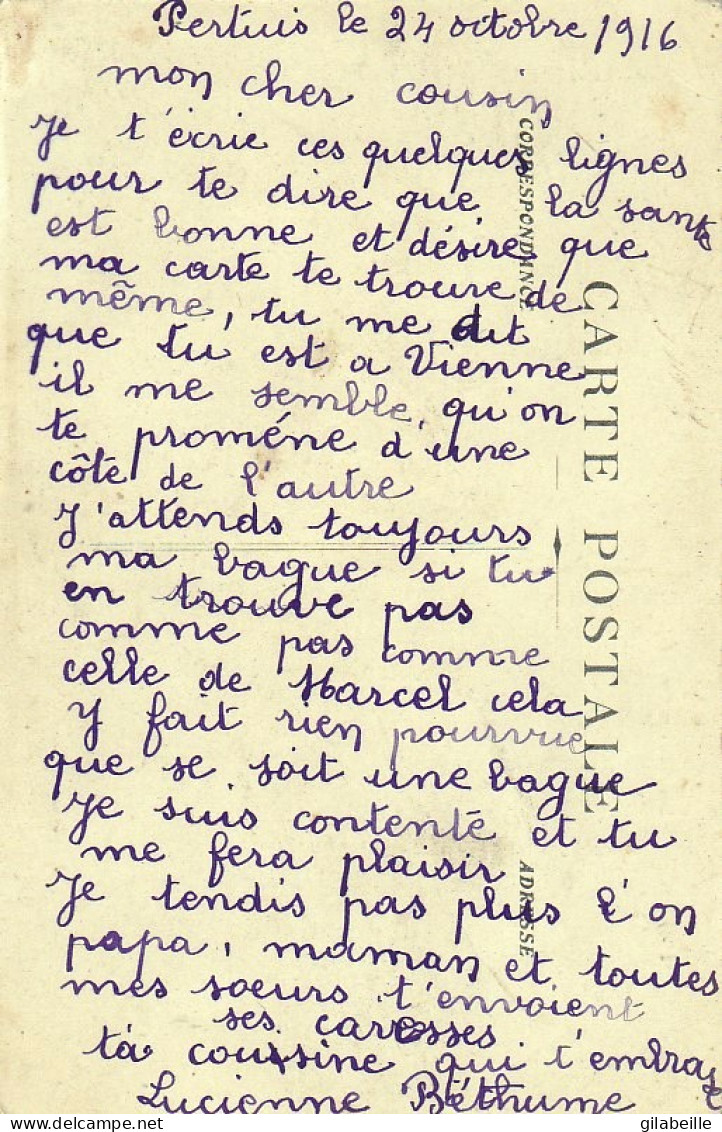 Pertuis le 24 octobre 1916
mon cher cousin
Je t'écrie ces quelques lignes
pour te dire que la santé
est bonne et désire que
ma carte te trouve de
même, tu me dit
que tu est a Vienne
il me semble, qu'on
te proméne d'une
côté de l'autre
J'attends toujours
ma bague si tu
en trouve pas
comme pas comme
celle de Marcel cela
y fait rien pourvue
que se soit une bague
Je suis contente et tu
me fera plaisir
Je tendis pas plus l'on
papa, maman et toutes
mes soeurs t'envoient
ses caresses
ta coussine qui t'embrasse
Lucienne Béthume
CORRESPONDANCE
CARTE POSTALE
ADRESSE
gilabeille